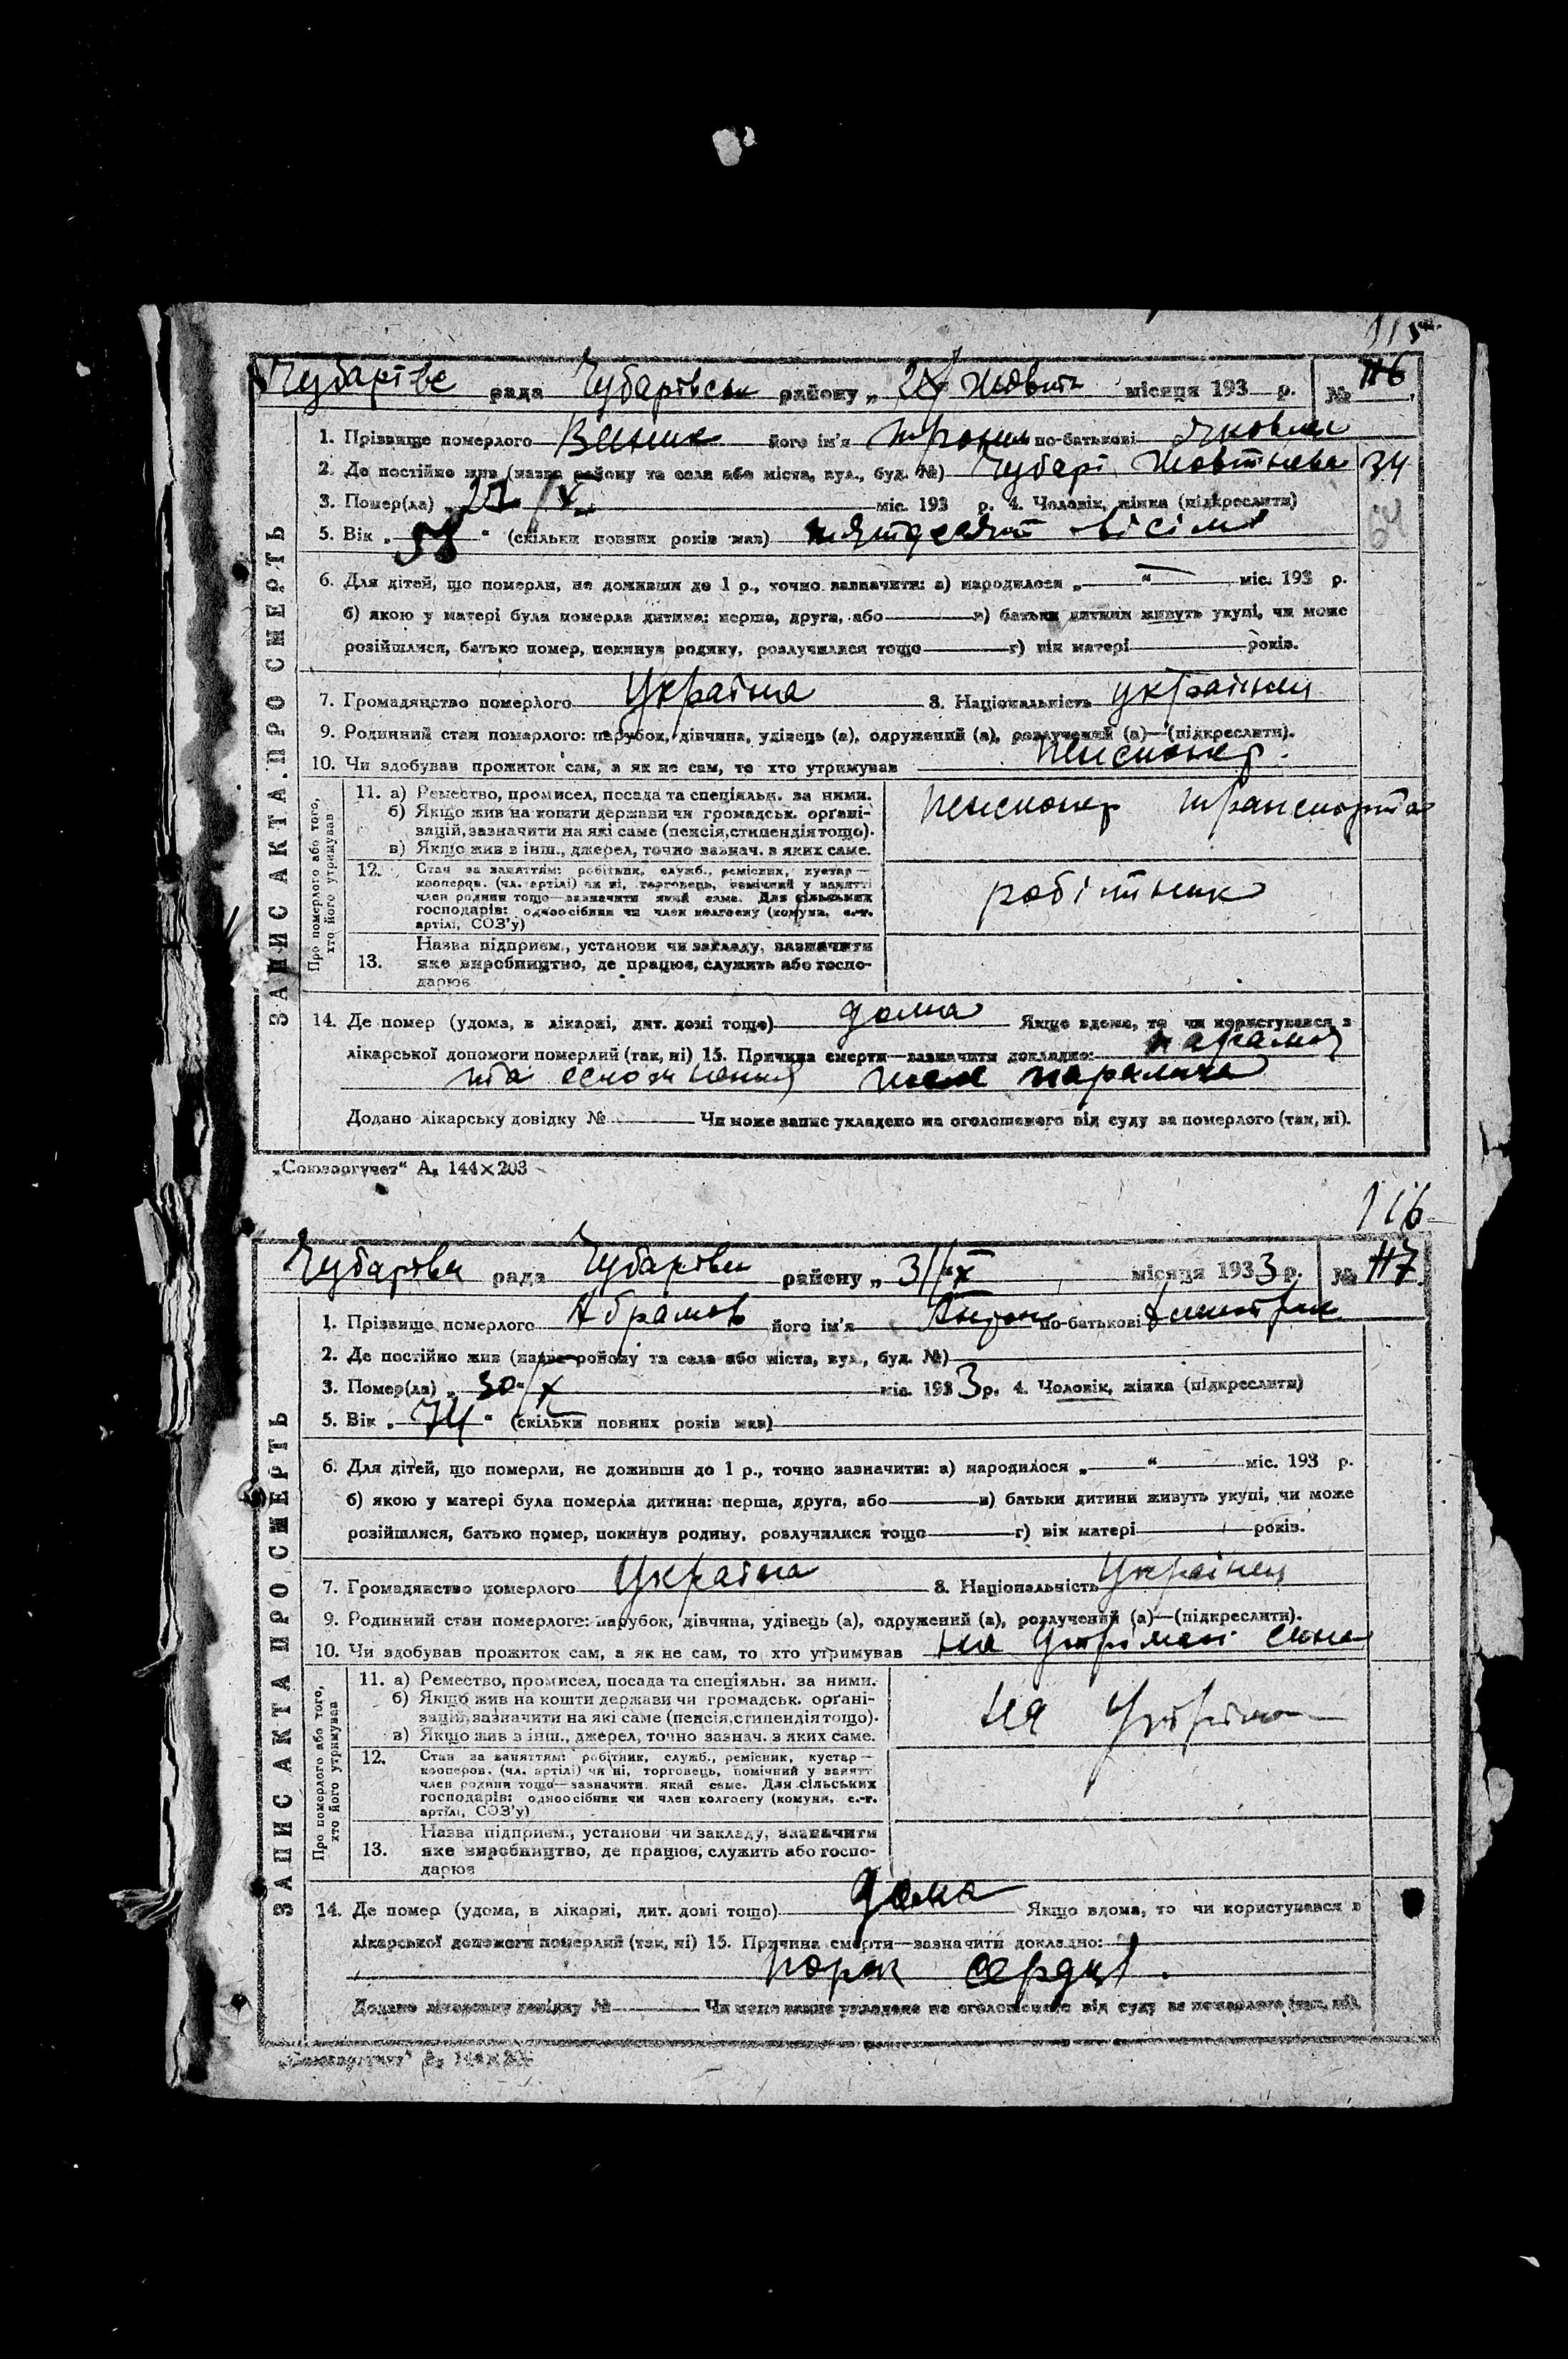 115
Чубарівс рада Чубарівськ району „ Жовтн місяця 193 р. № 116
1. Прізвище померлого його ім'я по-батькові Яковл
2. Де постійно жив (назва району та села або міста, вул., буд. №) Чубарі Жовтнева 34
3. Помер(ла) „27/X міс. 193 р. 4. Чоловік, жінка (підкреслити)
64
5. Вік „58“ (скільки повних років мав) пятдесят вісім
6. Для дітей, що померли, не доживши до 1 р., точно зазначити: а) народилося „ “ міс. 193 р.
б) якою у матері була померла дитина: перша, друга, або в) батьки дитини живуть укупі, чи може
розійшлися, батько помер, покинув родину, розлучилися тощо г) вік матері років.
7. Громадянство померлого Україна 8. Національність українец
9. Родинний стан померлого: парубок, дівчина, удівець (а), одружений (а), розлучений (а)—(підкреслити).
10. Чи здобував прожиток сам, а як не сам, то хто утримував пенсионер.
ЗАПИС АКТА ПРО СМЕРТЬ
Про померлого або того, хто його утримував
11. а) Ремество, промисел, посада та спеціяльн. за ними.
б) Якщо жив на кошти держави чи громадськ. організацій, зазначити на які саме (пенсія, стипендія тощо).
в) Якщо жив з інш., джерел, точно зазнач. з яких саме.
пенсионер транспорта
12. Стан за заняттям: робітник, служб., ремісник, кустар—
кооперов. (чл. артілі) чи ні, торговець, помічний у занятті
член родини тощо—зазначити який саме. Для сільських
господарів: одноосібник чи член колгоспу (комуни, с.-г.
артілі, СОЗ'у)
робітник
Назва підприєм., установи чи закладу, зазначити
13. яке виробництво, де працює, служить або господарює
14. Де помер (удома, в лікарні, дит. домі тощо) дома Якщо вдома, то чи користувався з
лікарської допомоги померлий (так, ні) 15. Причина смерти—зазначити докладно:
та паралича
Додано лікарську довідку № Чи може запис укладено на оголошеного від суду за померлого (так, ні).
„Союзоргучет“ А₅ 144×203
116
Чубарівськ рада Чубарівськ району „31/X місяця 1933 р. № 117
1. Прізвище померлого Абрамов його ім'я Антон по-батькові Дмитрієв
2. Де постійно жив (назва району та села або міста, вул., буд. №)
3. Помер(ла) „30“/X міс. 1933 р. 4. Чоловік, жінка (підкреслити)
5. Вік „74“ (скільки повних років мав)
6. Для дітей, що померли, не доживши до 1 р., точно зазначити: а) народилося „ “ міс. 193 р.
б) якою у матері була померла дитина: перша, друга, або в) батьки дитини живуть укупі, чи може
розійшлися, батько помер, покинув родину, розлучилися тощо г) вік матері років.
7. Громадянство померлого Україна 8. Національність Українец
9. Родинний стан померлого: парубок, дівчина, удівець (а), одружений (а), розлучений (а)—(підкреслити).
10. Чи здобував прожиток сам, а як не сам, то хто утримував на утримані сина
ЗАПИС АКТА ПРО СМЕРТЬ
Про померлого або того, хто його утримував
11. а) Ремество, промисел, посада та спеціяльн. за ними.
б) Якщо жив на кошти держави чи громадськ. організацій, зазначити на які саме (пенсія, стипендія тощо).
в) Якщо жив з інш., джерел, точно зазнач. з яких саме.
на
12. Стан за заняттям: робітник, служб., ремісник, кустар—
кооперов. (чл. артілі) чи ні, торговець, помічний у занятт
член родини тощо—зазначити який саме. Для сільських
господарів: одноосібник чи член колгоспу (комуни, с.-г.
артілі, СОЗ'у)
Назва підприєм., установи чи закладу, зазначити
13. яке виробництво, де працює, служить або господарює
14. Де помер (удома, в лікарні, дит. домі тощо) дома Якщо вдома, то чи користувався з
лікарської допомоги померлий (так, ні) 15. Причина смерти—зазначити докладно:
порок сердця.
Додано лікарську довідку № Чи може запис укладено на оголошеного від суду за померлого (так, ні).
„Союзоргучет“ А₅ 144×203